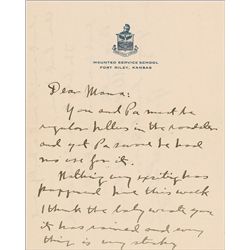 MOUNTED SERVICE SCHOOL
FORT RILEY, KANSAS
Dear Mama:
You and Pa must be
regular fillers in the roadster
and yet Pa said he had
no use for it.
Nothing very exciting has
happened here this week
I think the baby wrote you
it has rained and every
thing is very sticky